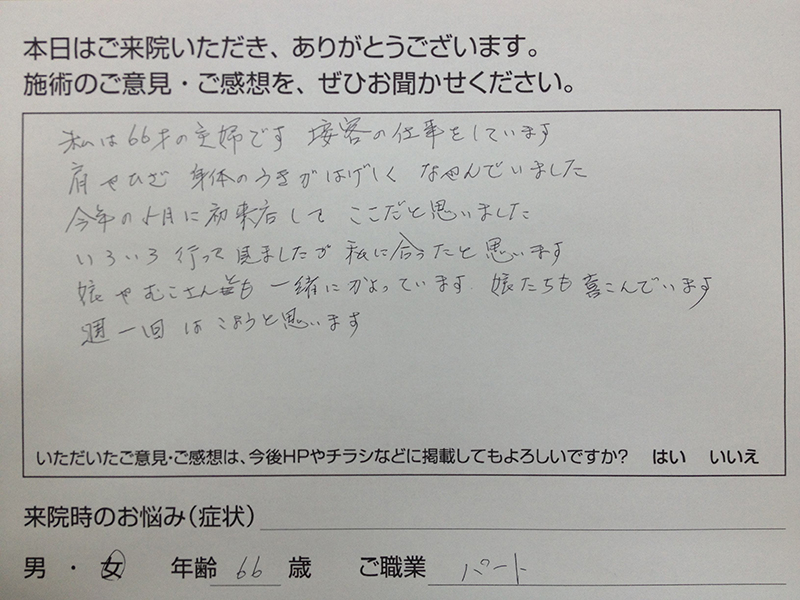 本日はご来院いただき、ありがとうございます。
施術のご意見・ご感想を、ぜひお聞かせください。
私は66才の主婦です 接客の仕事をしています
肩やひざ 身体の がはげしく なやんでいました
今年の5月に初来店して ここだと思いました
いろいろ 行って 見ましたが 私に合うたと思います
娘やむこさん も 一緒にかよっています. 娘たちも喜こんでいます
週一回 はこようと思います
いただいたご意見・ご感想は、今後HPやチラシなどに掲載してもよろしいですか? はい いいえ
来院時のお悩み(症状)
男 ・ 女 年齢 66 歳 ご職業 パート